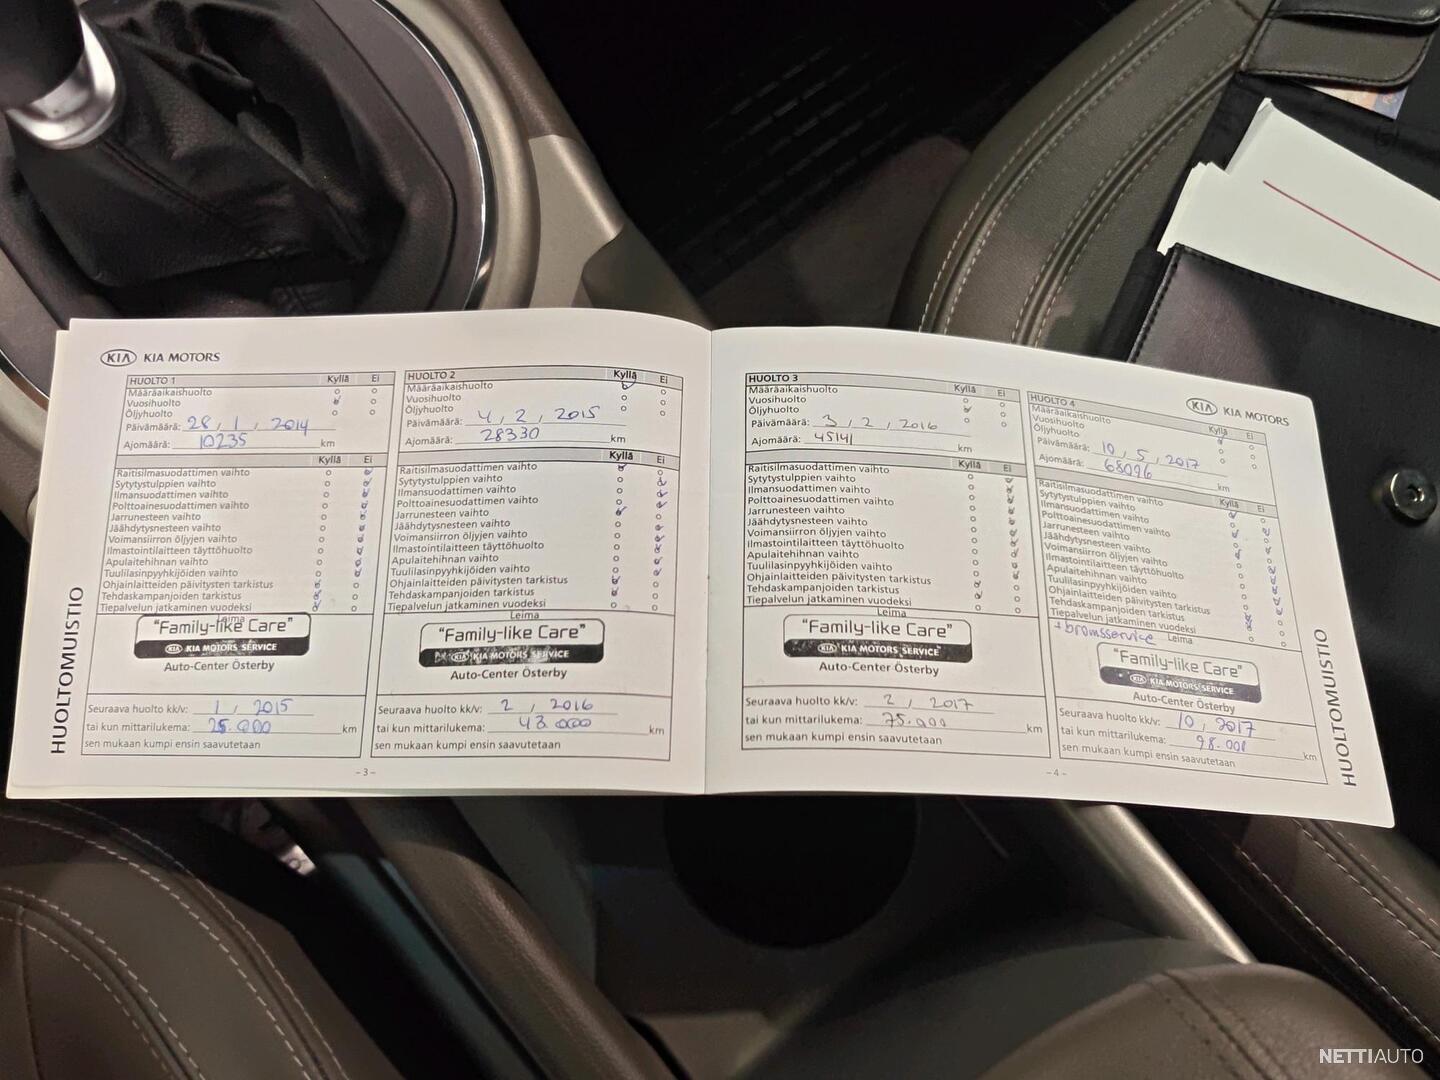 KIA KIA MOTORS
HUOLTO 1 Kyllä Ei
Määräaikaishuolto
Vuosihuolto
Öljyhuolto
Päivämäärä: 28, 1, 2014
Ajomäärä: 10235 km
Kyllä Ei
Raitisilmasuodattimen vaihto
Sytytystulppien vaihto
Ilmansuodattimen vaihto
Polttoainesuodattimen vaihto
Jarrunesteen vaihto
Jäähdytysnesteen vaihto
Voimansiirron öljyjen vaihto
Ilmastointilaitteen täyttöhuolto
Apulaitehihnan vaihto
Tuulilasinpyyhkijöiden vaihto
Ohjainlaitteiden päivitysten tarkistus
Tehdaskampanjoiden tarkistus
Tiepalvelun jatkaminen vuodeksi
Leima
"Family-like Care"
KIA KIA MOTORS SERVICE
Auto-Center Österby
Seuraava huolto kk/v: 1, 2015
tai kun mittarilukema: 25.000 km
sen mukaan kumpi ensin saavutetaan
HUOLTOMUISTIO
HUOLTO 2 Kyllä Ei
Määräaikaishuolto
Vuosihuolto
Öljyhuolto
Päivämäärä: 4, 2, 2015
Ajomäärä: 28330 km
Kyllä Ei
Raitisilmasuodattimen vaihto
Sytytystulppien vaihto
Ilmansuodattimen vaihto
Polttoainesuodattimen vaihto
Jarrunesteen vaihto
Jäähdytysnesteen vaihto
Voimansiirron öljyjen vaihto
Ilmastointilaitteen täyttöhuolto
Apulaitehihnan vaihto
Tuulilasinpyyhkijöiden vaihto
Ohjainlaitteiden päivitysten tarkistus
Tehdaskampanjoiden tarkistus
Tiepalvelun jatkaminen vuodeksi
Leima
"Family-like Care"
KIA KIA MOTORS SERVICE
Auto-Center Österby
Seuraava huolto kk/v: 2, 2016
tai kun mittarilukema: 43.000 km
sen mukaan kumpi ensin saavutetaan
- 3 -
HUOLTO 3 Kyllä Ei
Määräaikaishuolto
Vuosihuolto
Öljyhuolto
Päivämäärä: 3, 2, 2016
Ajomäärä: 45141 km
Kyllä Ei
Raitisilmasuodattimen vaihto
Sytytystulppien vaihto
Ilmansuodattimen vaihto
Polttoainesuodattimen vaihto
Jarrunesteen vaihto
Jäähdytysnesteen vaihto
Voimansiirron öljyjen vaihto
Ilmastointilaitteen täyttöhuolto
Apulaitehihnan vaihto
Tuulilasinpyyhkijöiden vaihto
Ohjainlaitteiden päivitysten tarkistus
Tehdaskampanjoiden tarkistus
Tiepalvelun jatkaminen vuodeksi
Leima
"Family-like Care"
KIA KIA MOTORS SERVICE
Auto-Center Österby
Seuraava huolto kk/v: 2, 2017
tai kun mittarilukema: 75.000 km
sen mukaan kumpi ensin saavutetaan
KIA KIA MOTORS
HUOLTO 4 Kyllä Ei
Määräaikaishuolto
Vuosihuolto
Öljyhuolto
Päivämäärä: 10, 5, 2017
Ajomäärä: 68096 km
Kyllä Ei
Raitisilmasuodattimen vaihto
Sytytystulppien vaihto
Ilmansuodattimen vaihto
Polttoainesuodattimen vaihto
Jarrunesteen vaihto
Jäähdytysnesteen vaihto
Voimansiirron öljyjen vaihto
Ilmastointilaitteen täyttöhuolto
Apulaitehihnan vaihto
Tuulilasinpyyhkijöiden vaihto
Ohjainlaitteiden päivitysten tarkistus
Tehdaskampanjoiden tarkistus
Tiepalvelun jatkaminen vuodeksi
+bromsservice Leima
"Family-like Care"
KIA KIA MOTORS SERVICE
Auto-Center Österby
Seuraava huolto kk/v: 10, 2017
tai kun mittarilukema: 98.000 km
sen mukaan kumpi ensin saavutetaan
- 4 -
HUOLTOMUISTIO
NETTIAUTO